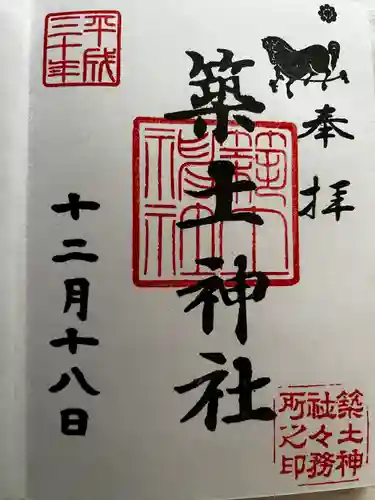 奉拝
築土神社
築土神
社々務
所之印
平成
三十年
十二月十八日